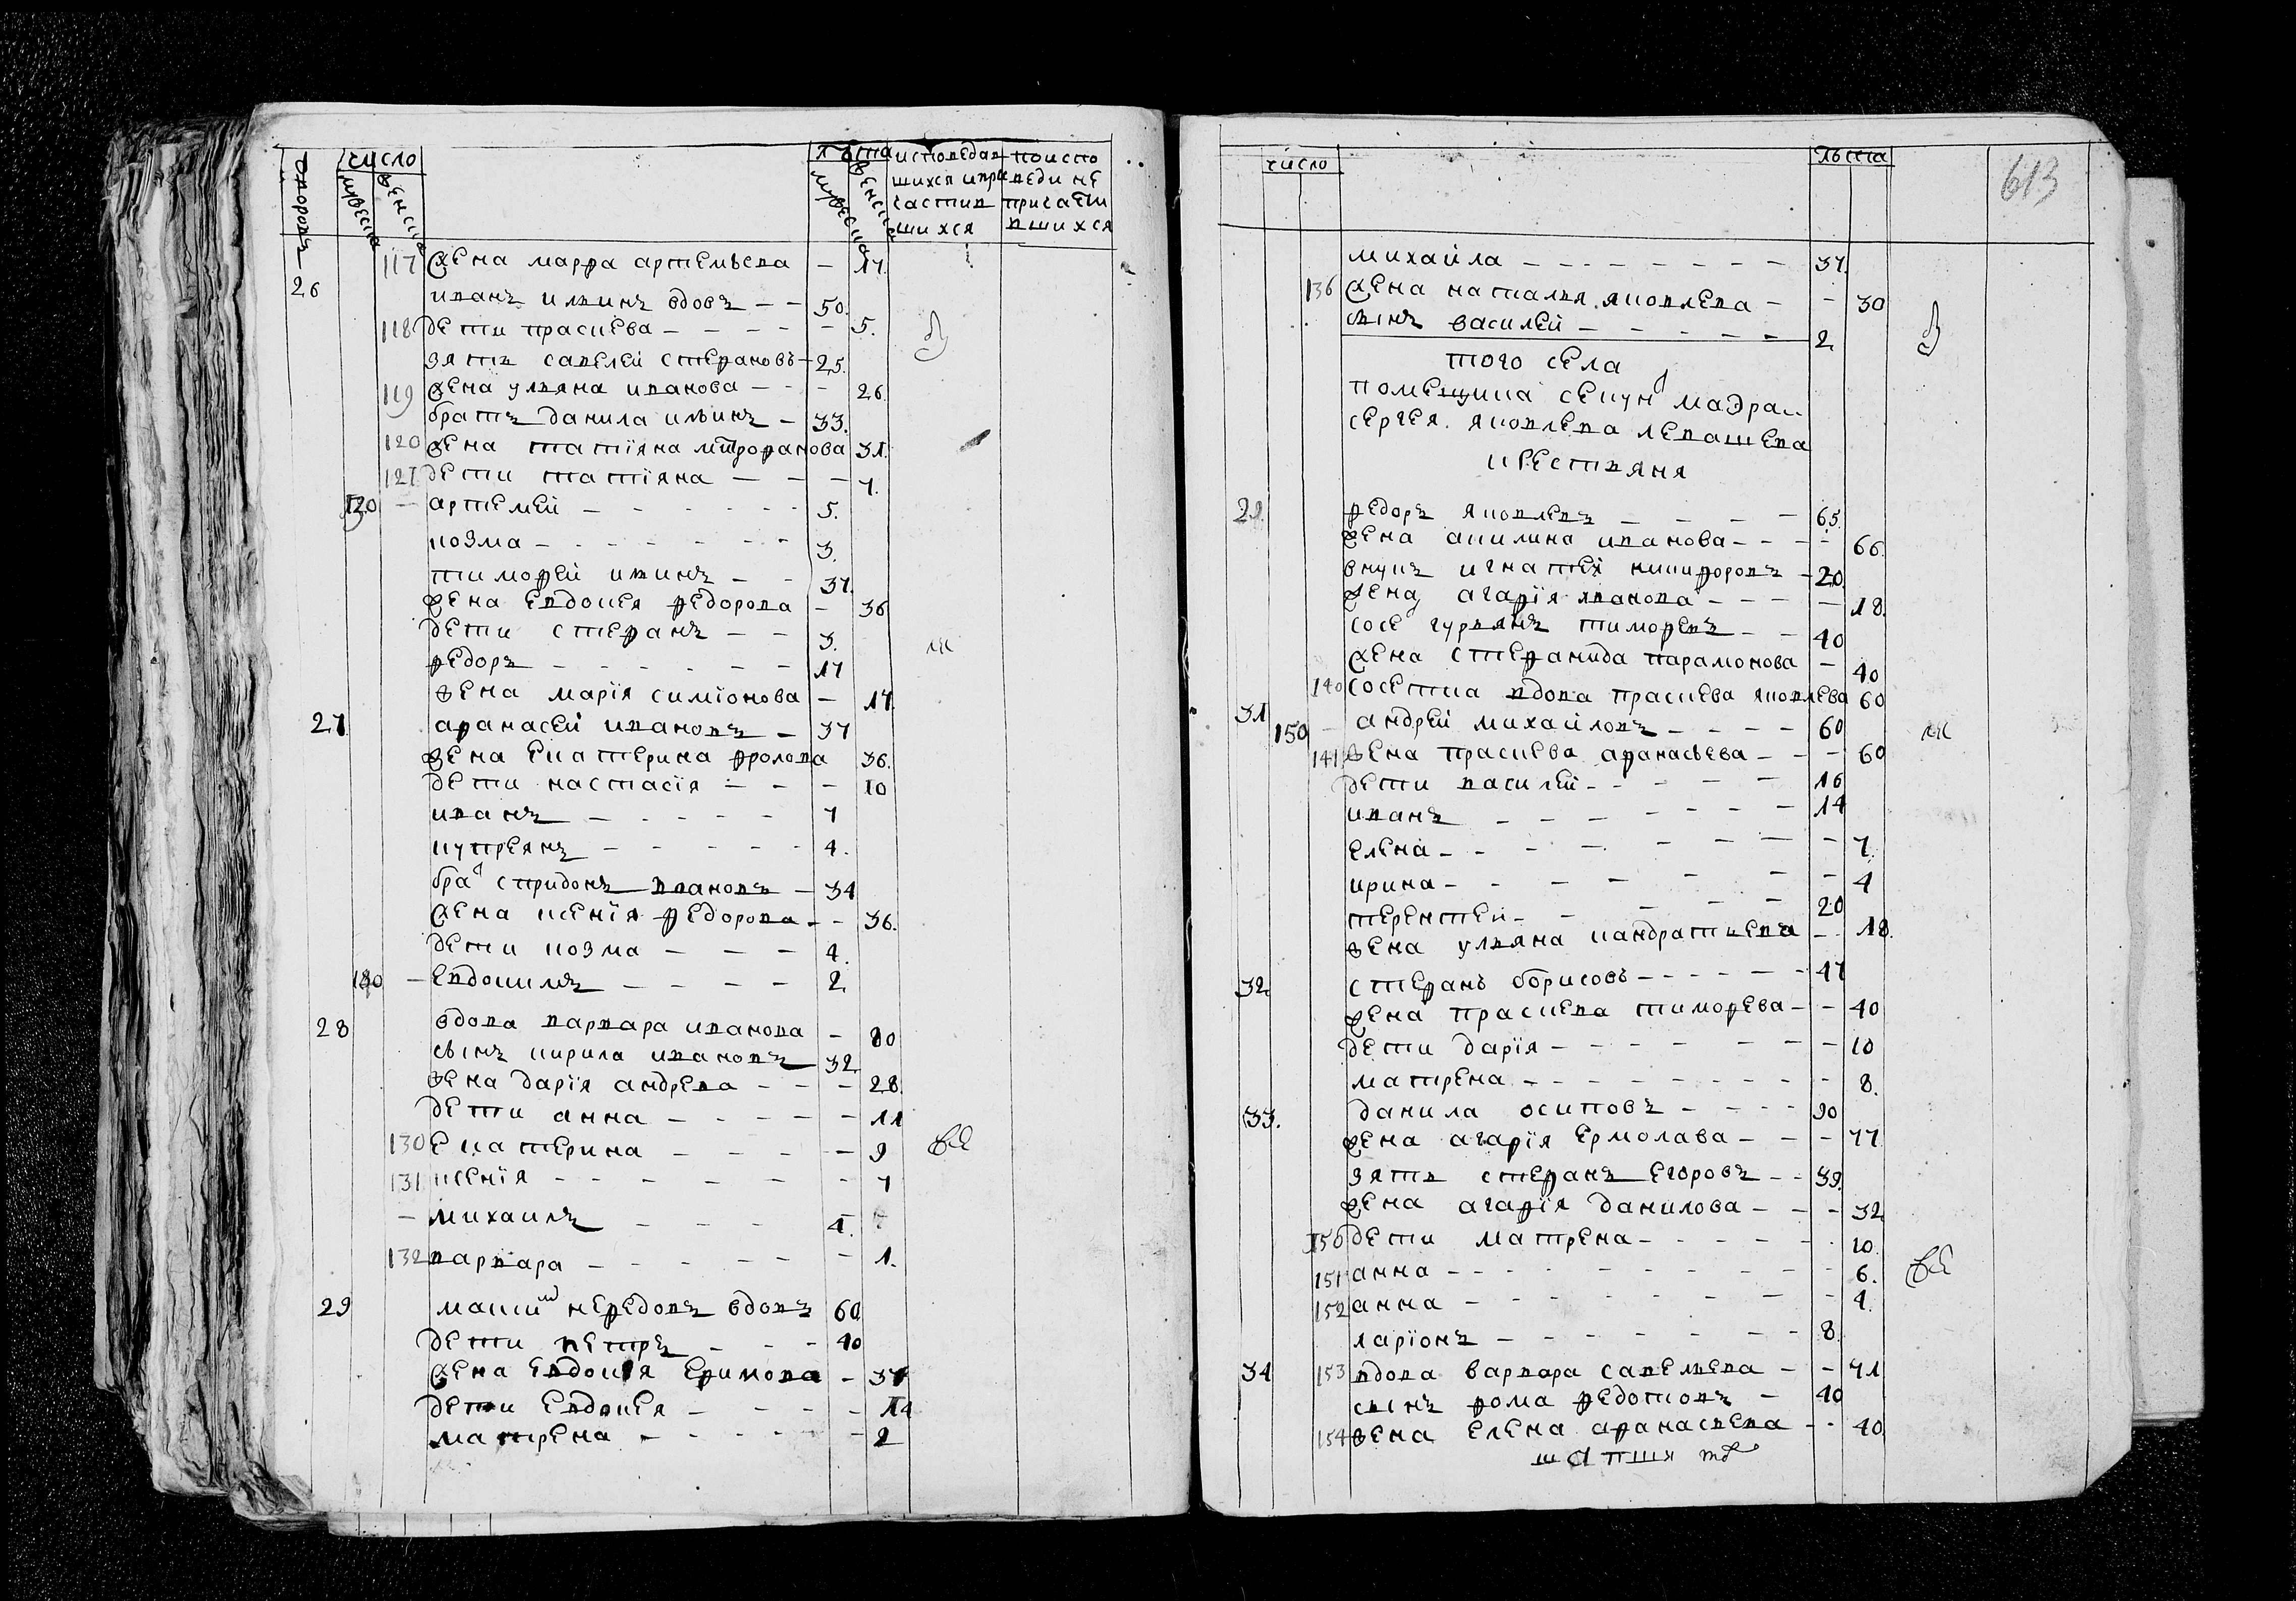 дворовъ число лѣта исповедав поиспо
мужеска женска мужеска женска шихся и при веди не
частив причасти
шихся вшихся
117 жена марфа артемьева — 17.
26 иванъ ильинъ вдовъ — — 50.
118 дети праскева — — — — — 5.
зять савелей стефановъ — 25.
119 жена ульяна иванова — — — 26.
братъ данила ильинъ — 33.
120 жена татїяна митрофанова 31.
121 дети татїяна — — — 7.
120 — артемей — — — — — — 5.
козма — — — — — — — 3.
тимофей ильинъ — — 37.
жена евдокея федорова — 36
дети стефанъ — — 3.
федоръ — — — — — — 17
жена марїя симїонова — 17.
27 афанасей ивановъ — 37
жена екатерина фролова 36.
дети настасїя — — — 10
иванъ — — — — — 7
купреянъ — — — — — 4.
бра спридонъ ивановъ — 34
жена ксенїя федорова — — 36.
дети козма — — — 4.
130 — евдокимъ — — — — 2.
28 вдова варвара иванова — 80
сынъ кирила ивановъ 32.
жена дарїя андрева — — — 28.
дети анна — — — — — 11
130 екатерина — — — — — 9
131 ксенїя — — — — — — 7
— михаилъ — — — 4.
132 варвара — — — — — — 1.
29 нефедовъ вдовъ 60
дети петръ — — — 40
жена евдокея ефимова — 37
дети евдокея — — — — 14
матрена — — — — — — 2
613
число лѣта
михайла — — — — — — — 37.
136 жена наталья яковлева — — 30
сынъ василей — — — — — 2.
того села
помещика секун маэра
сергея яковлева левашева
крестьяня
федоръ яковлевъ — — — — 65.
жена акилина иванова — — — — 66.
внукъ игнатей никифоровъ — 20.
жена агафїя иванова — — — — 18.
сосе гурьянъ тимофевъ — — 40
жена стефанида парамонова — 40
140 сосетка вдова праскева яковлева 60
31 150 — андрей михайловъ — — — — 60
141 жена праскева афанасьева — — — 60
дети василей — — — — — 16
иванъ — — — — — — — 14
елена — — — — — — — — 7.
ирина — — — — — — — 4
терентей — — — — — 20
жена ульяна кандратьева — — 18.
32. стефанъ борисовъ — — — — — — 47
жена праскева тимофева — — 40
дети дарїя — — — — — — — — 10
матрена — — — — — — — — — 8.
33. данила осиповъ — — — — 90
жена агафїя ермолава — — — 77
зять стефанъ егоровъ — — 39.
жена агафїя данилова — — — 32.
150 дети матрена — — — — — — 10.
151 анна — — — — — — — — — 6.
152 анна — — — — — — — 4.
ларїонъ — — — — — — — 8.
34 153 вдова варвара савельева — — 71
сынъ фома федотовъ — 40
154 жена елена афанасьева — — 40.